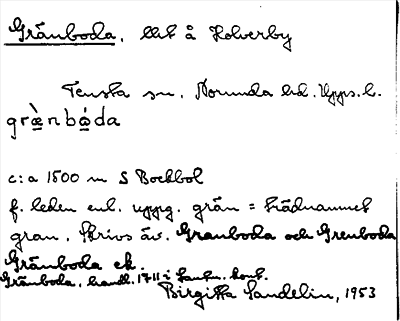 Gränboda, llit å Holverby
Tensta sn. Norunda hd. Upps. l.
græ̀nbǿda
c:a 1500 m S Bockbol
f. leden enl. uppg. grän = trädnamnet
gran. Skrivs äv. Granboda och Grenboda
Gränboda ek.
Gränboda, handl. 1711 i Lantm. kont.
Birgitta Sandelin, 1953